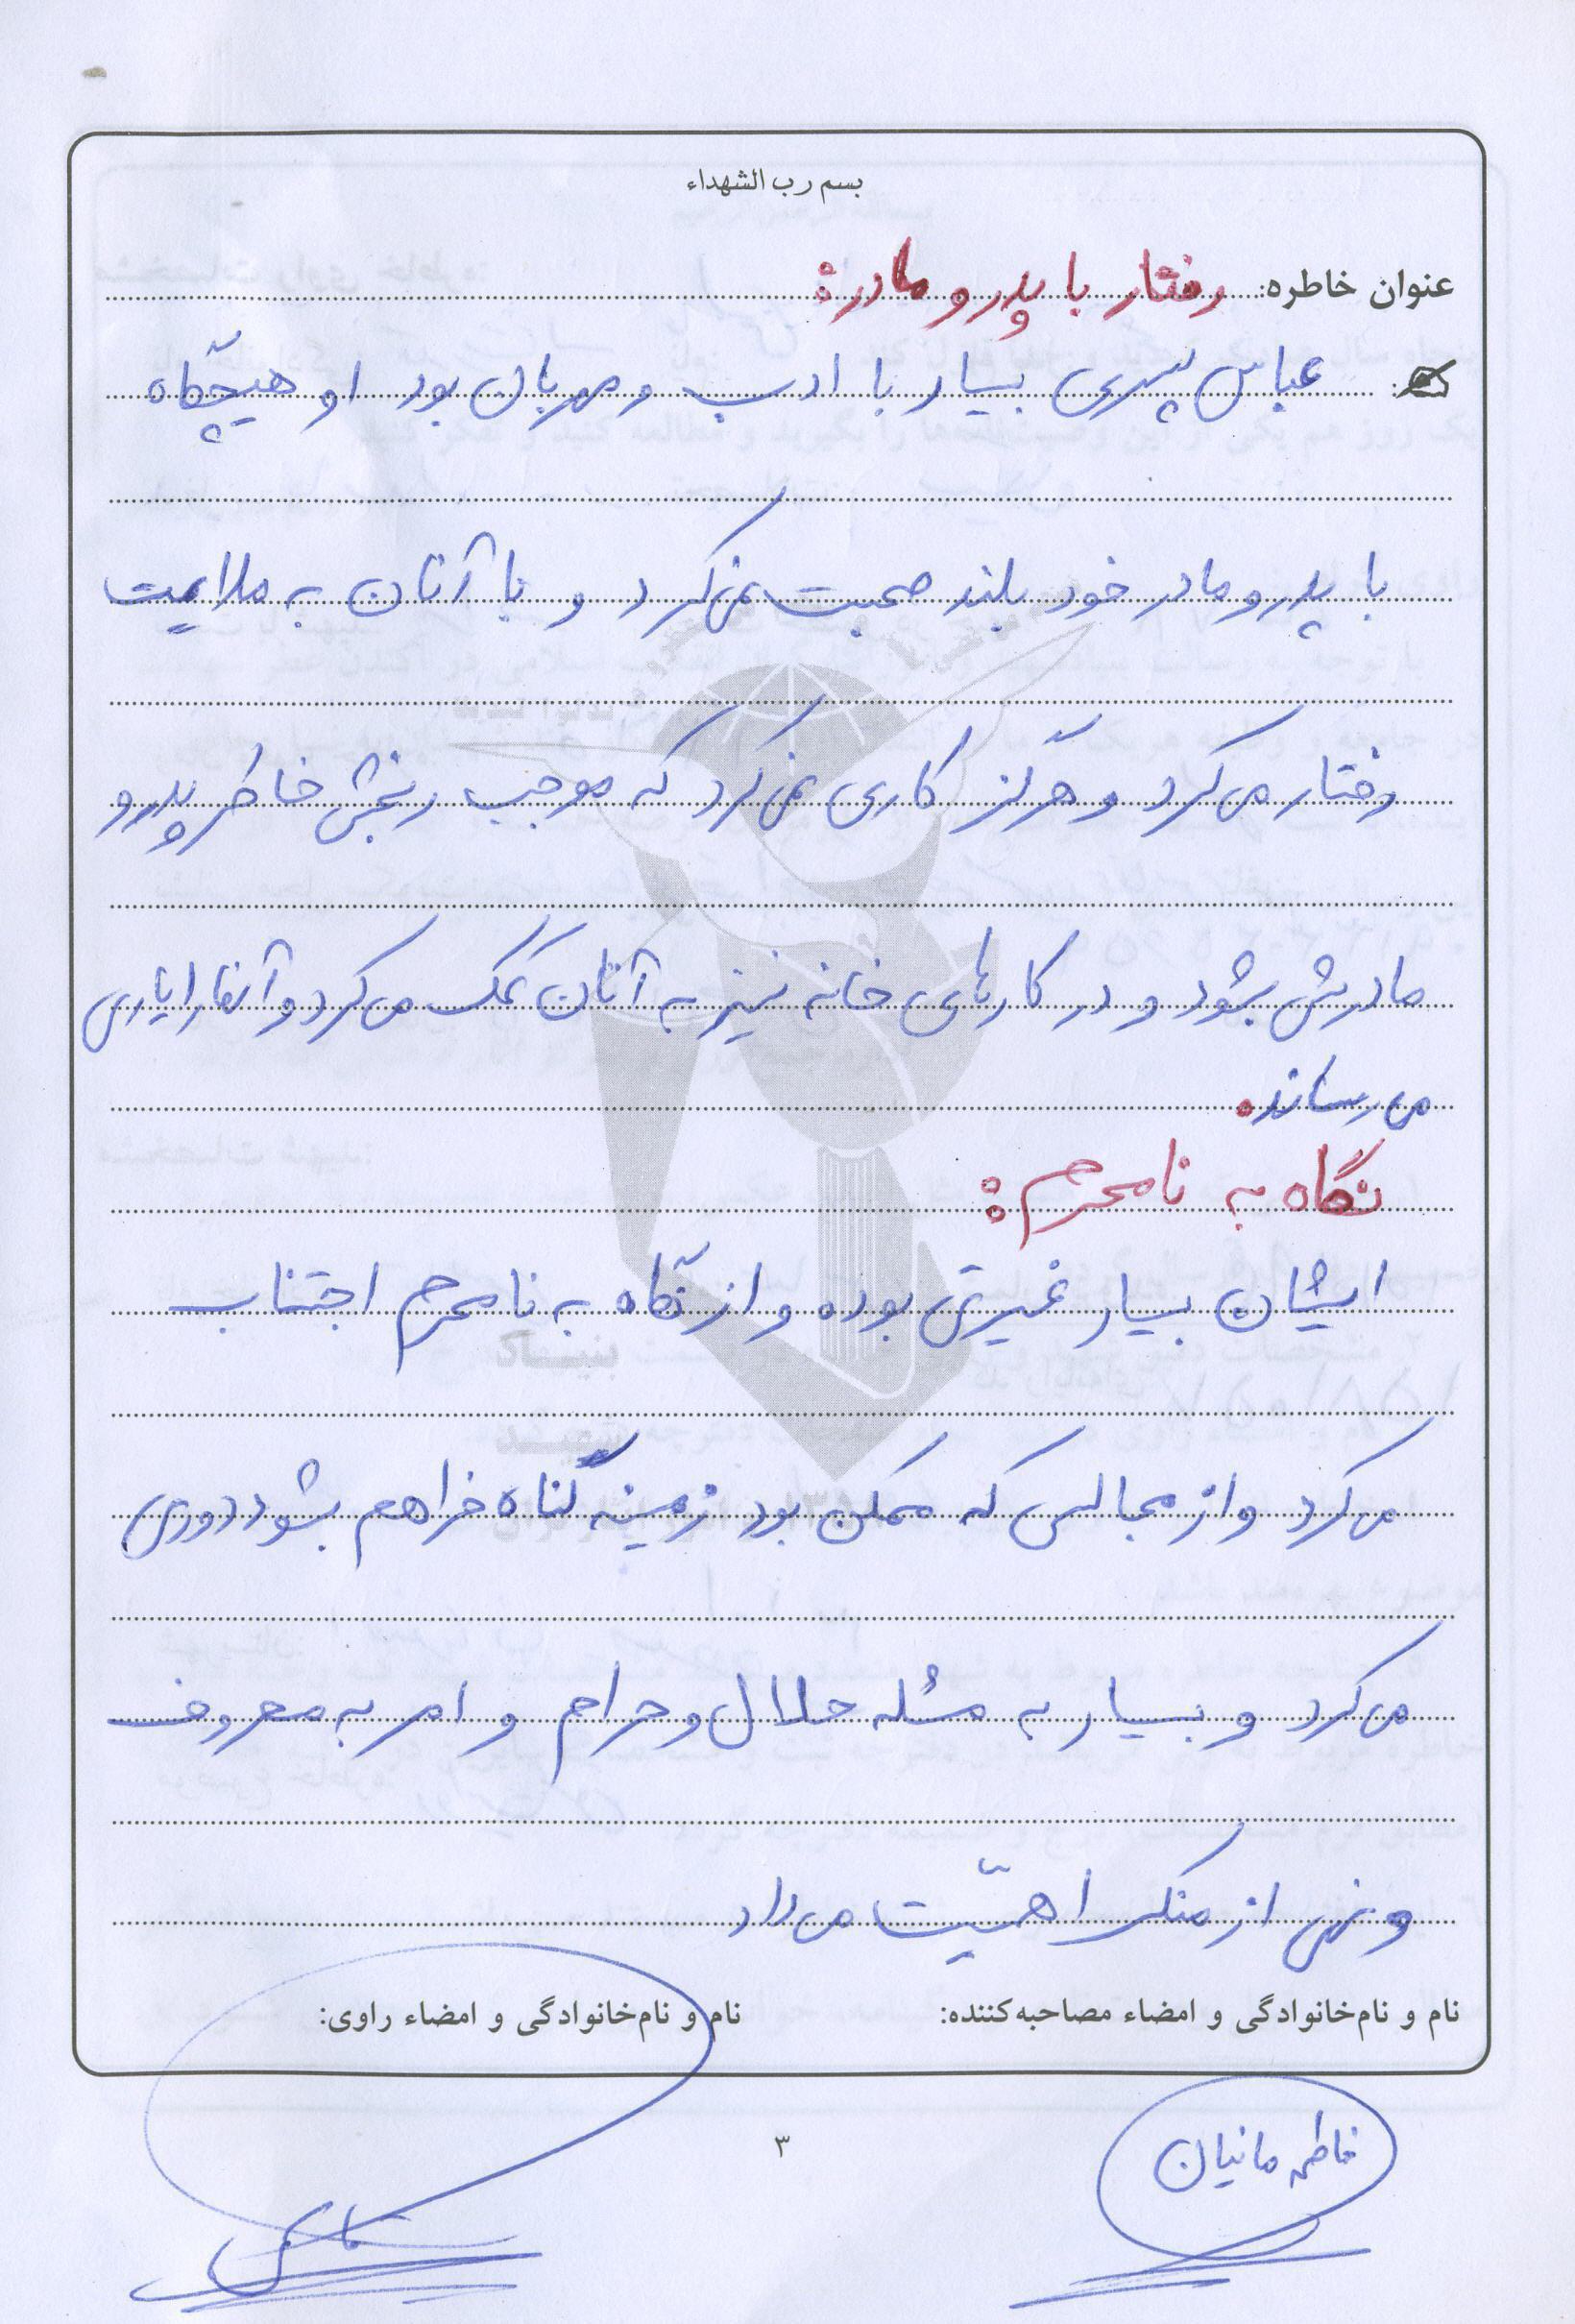 بسم رب الشهداء
عنوان خاطره: رفتار با پدر و مادر:
عباس پسری بسیار با ادب و مهربان بود او هیچگاه
با پدر و مادر خود بلند صحبت نمی‌کرد و با آنان به ملایمت
رفتار می‌کرد و هرگز کاری نمی‌کرد که موجب رنجش خاطر پدر و
مادرش بشود و در کارهای خانه نیز به آنان کمک می‌کرد و آنها را یاری
می‌رساند.
نگاه به نامحرم:
ایشان بسیار غیرتی بوده و از نگاه به نامحرم اجتناب
می‌کرد و از مجالسی که ممکن بود زمینه گناه فراهم بشود دوری
می‌کرد و بسیار به مسئله حلال و حرام و امر به معروف
و نهی از منکر اهمیّت می‌داد
نام و نام‌خانوادگی و امضاء مصاحبه‌کننده: نام و نام‌خانوادگی و امضاء راوی:
فاطمه مانیان
۳